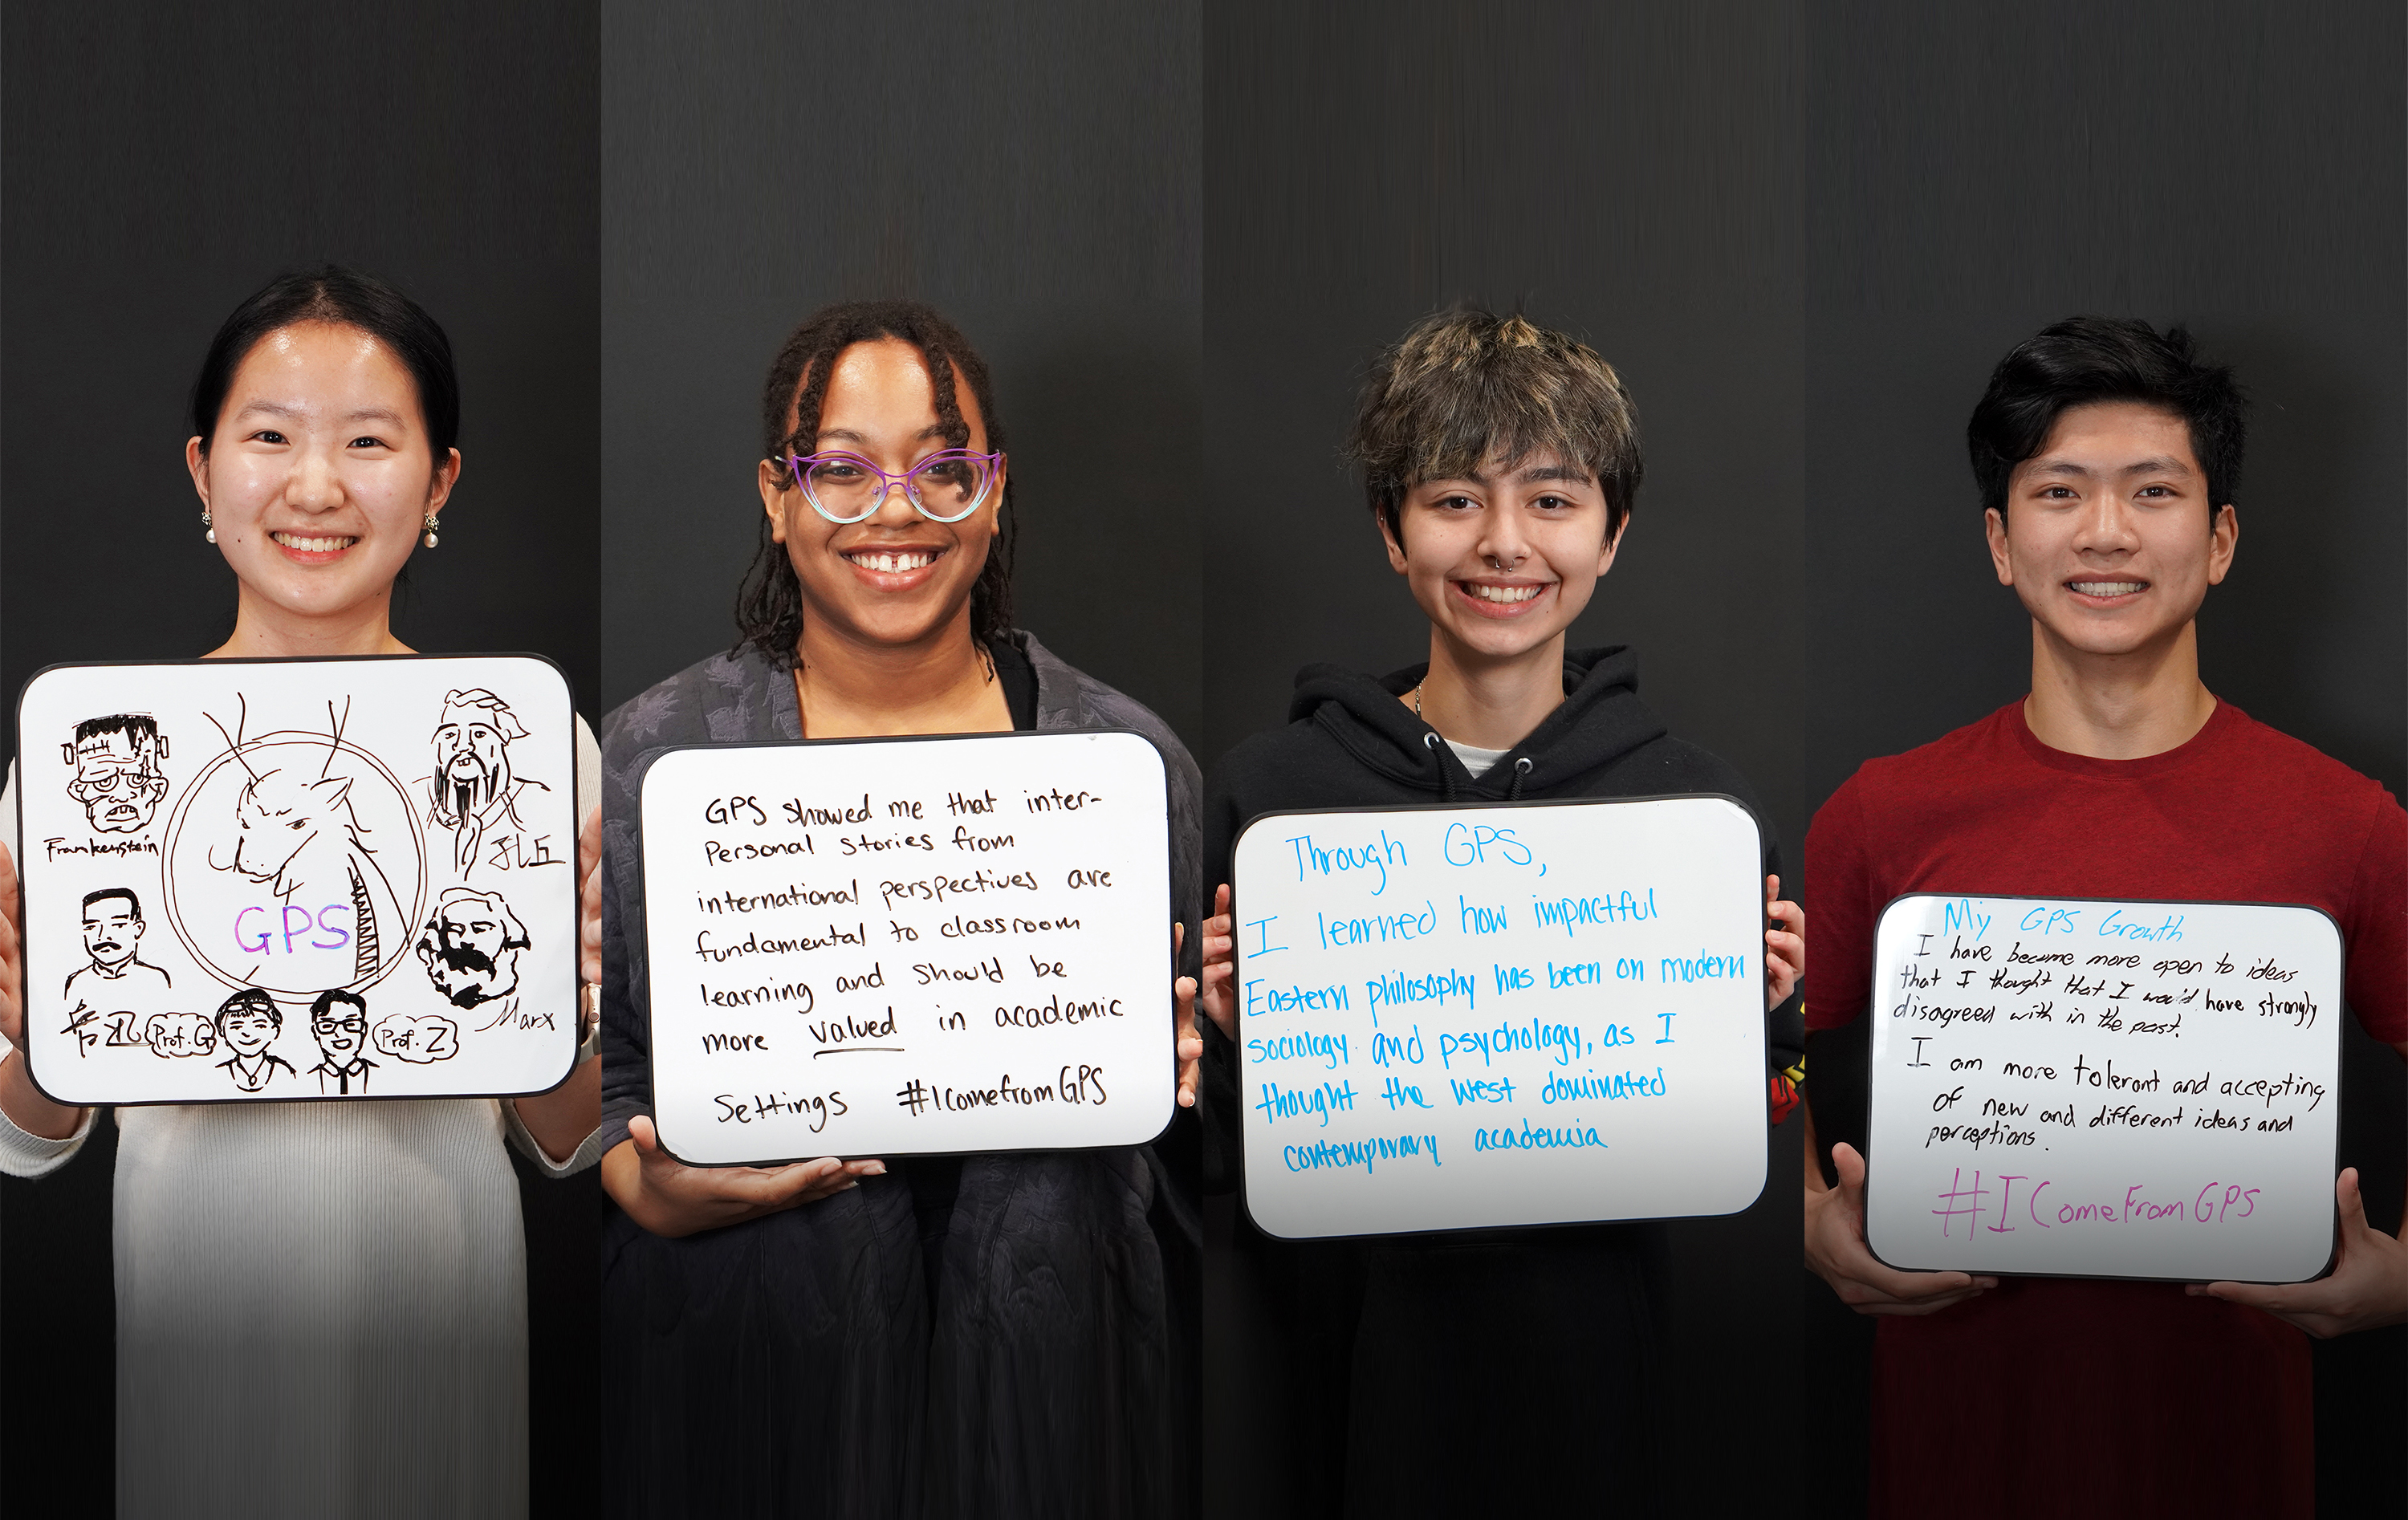 Frankenstein
孔丘
GPS
鲁迅
Marx
Prof. G
Prof. Z
GPS showed me that inter-
personal stories from
international perspectives are
fundamental to classroom
learning and should be
more valued in academic
settings #IComefromGPS
Through GPS,
I learned how impactful
Eastern philosophy has been on modern
sociology and psychology, as I
thought the West dominated
contemporary academia
My GPS Growth
I have become more open to ideas
that I thought that I would have strongly
disagreed with in the past.
I am more tolerant and accepting
of new and different ideas and
perceptions.
#IComeFromGPS